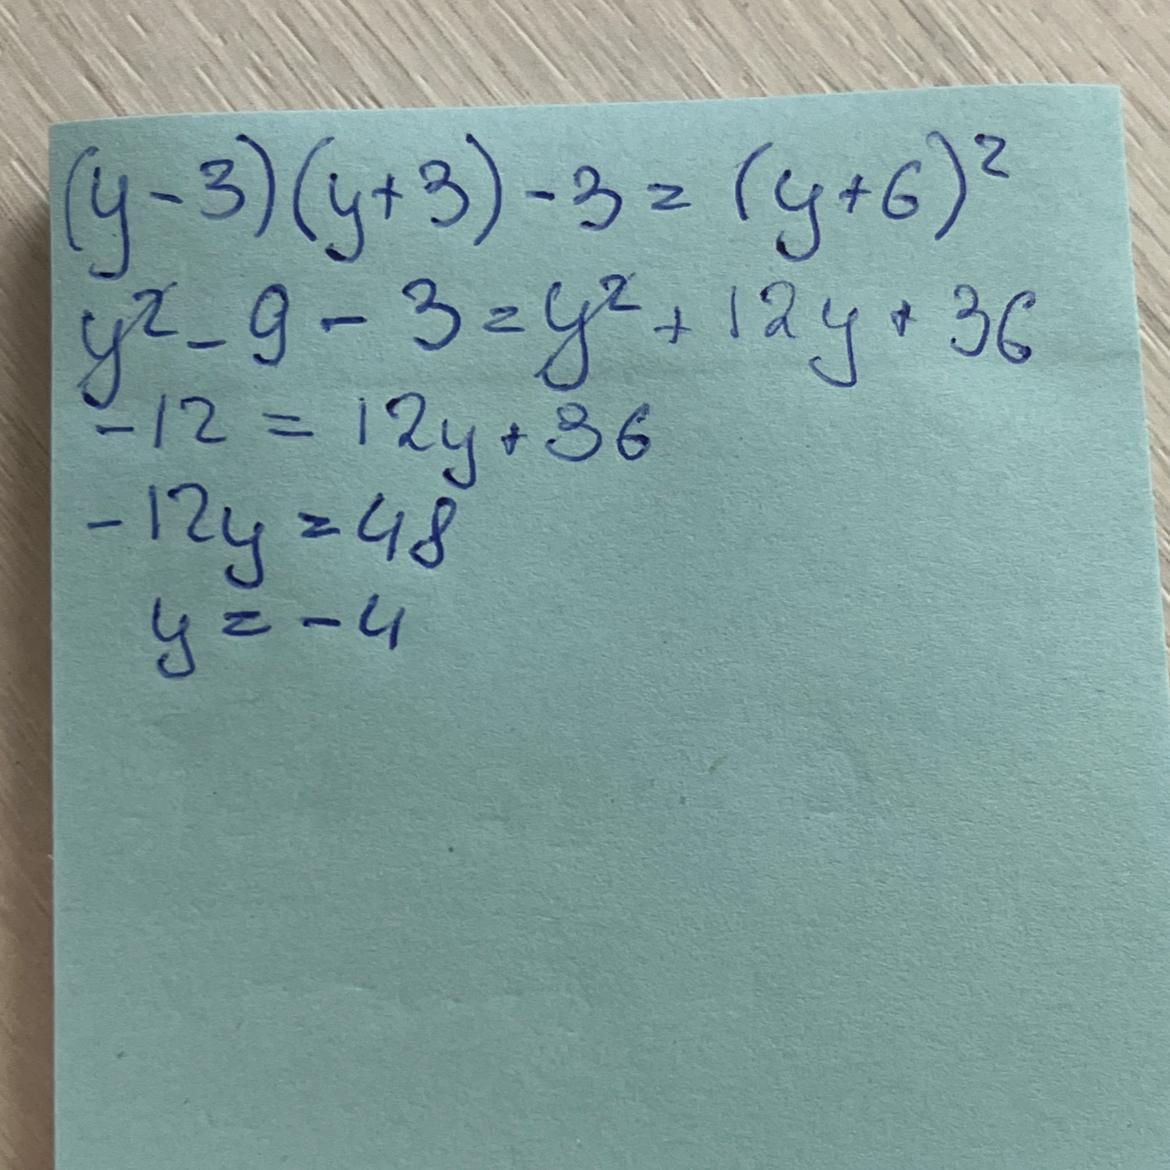 (y-3)(y+3)-3=(y+6)²
y²-9-3=y²+12y+36
-12=12y+36
-12y=48
y=-4